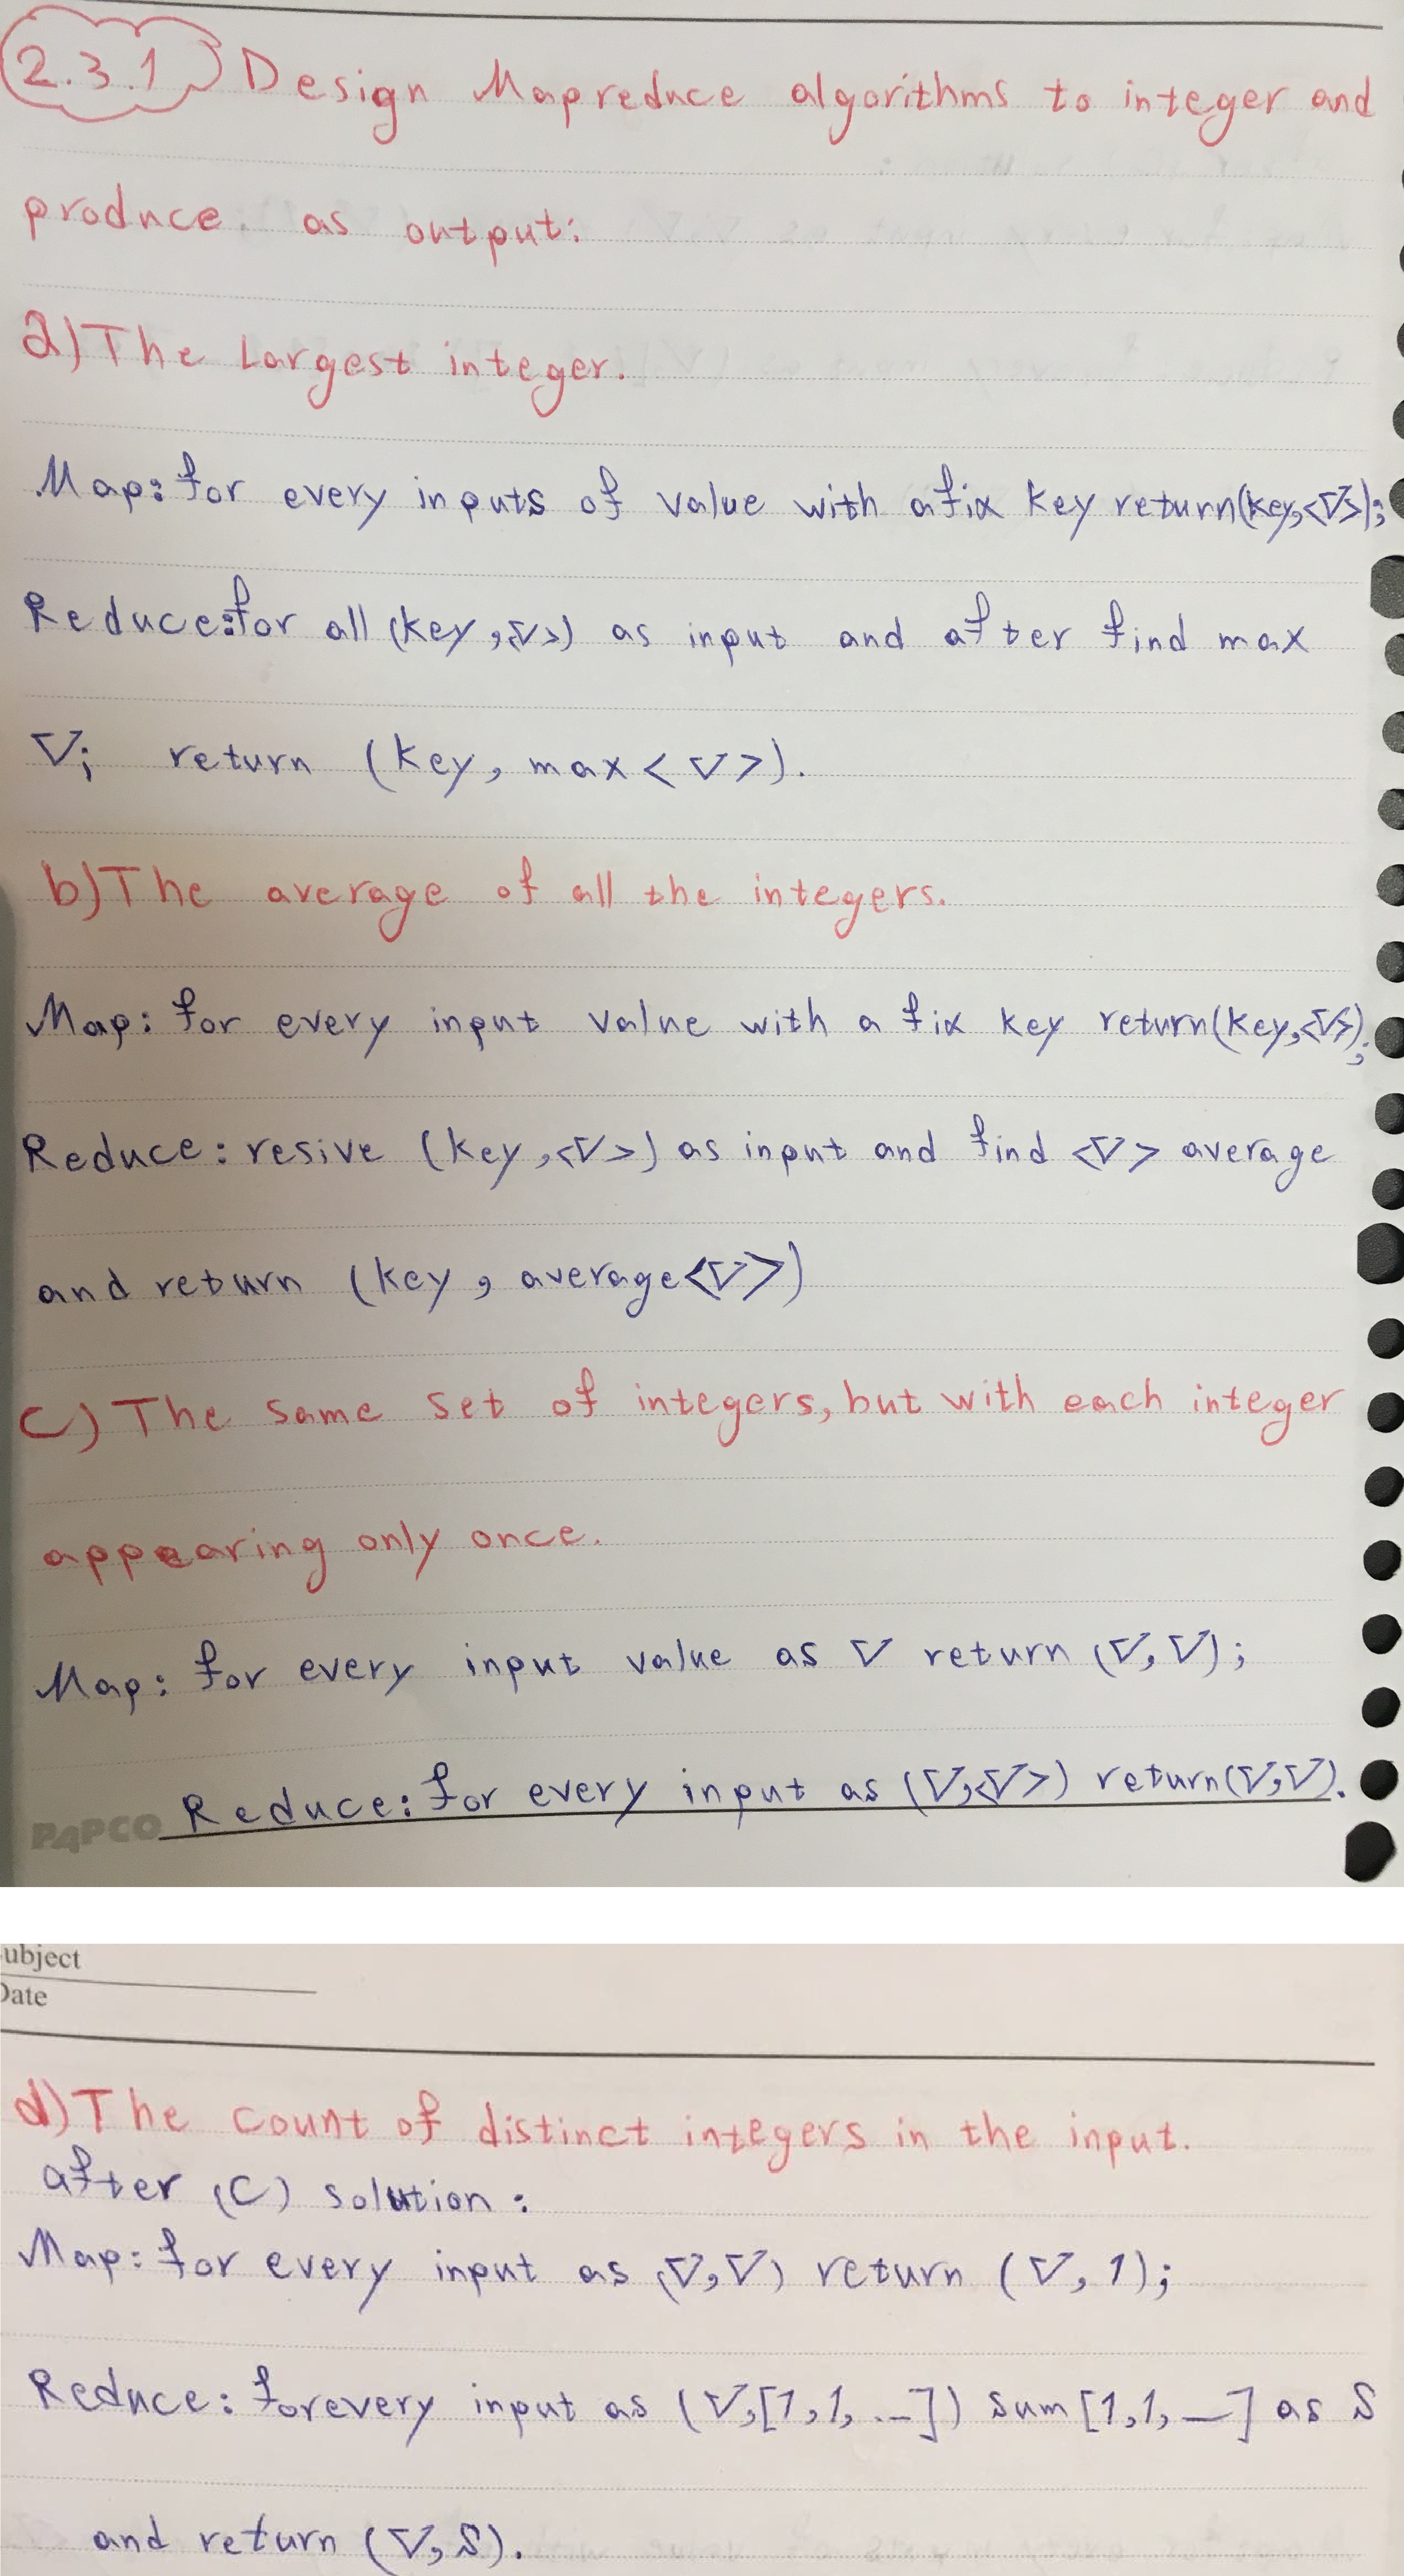 2.3.1 Design Mapreduce algorithms to integer and
produce as output:
a) The Largest integer.
Map: for every inputs of value with a fix key return(key,<V>);
Reduce: for all (key,<V>) as input and after find max
V; return (key, max<V>).
b) The average of all the integers.
Map: for every input value with a fix key return(key,<V>);
Reduce: resive (key,<V>) as input and find <V> average
and return (key, average<V>)
C) The same set of integers, but with each integer
appearing only once.
Map: for every input value as V return (V,V);
Reduce: for every input as (V,<V>) return(V,V).
PAPCO
ubject
Date
d) The count of distinct integers in the input.
after (C) solution:
Map: for every input as (V,V) return (V,1);
Reduce: for every input as (V,[1,1,...]) sum [1,1,...] as S
and return (V,S).